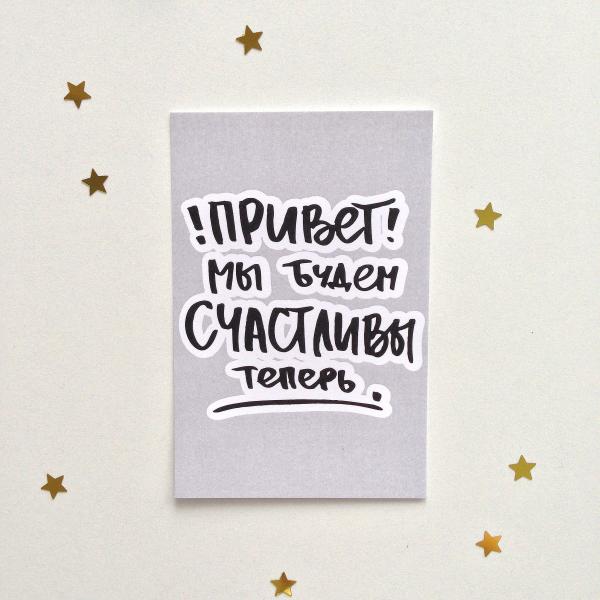 !ПРИВЕТ!
МЫ БУДЕМ
СЧАСТЛИВЫ
ТЕПЕРЬ.